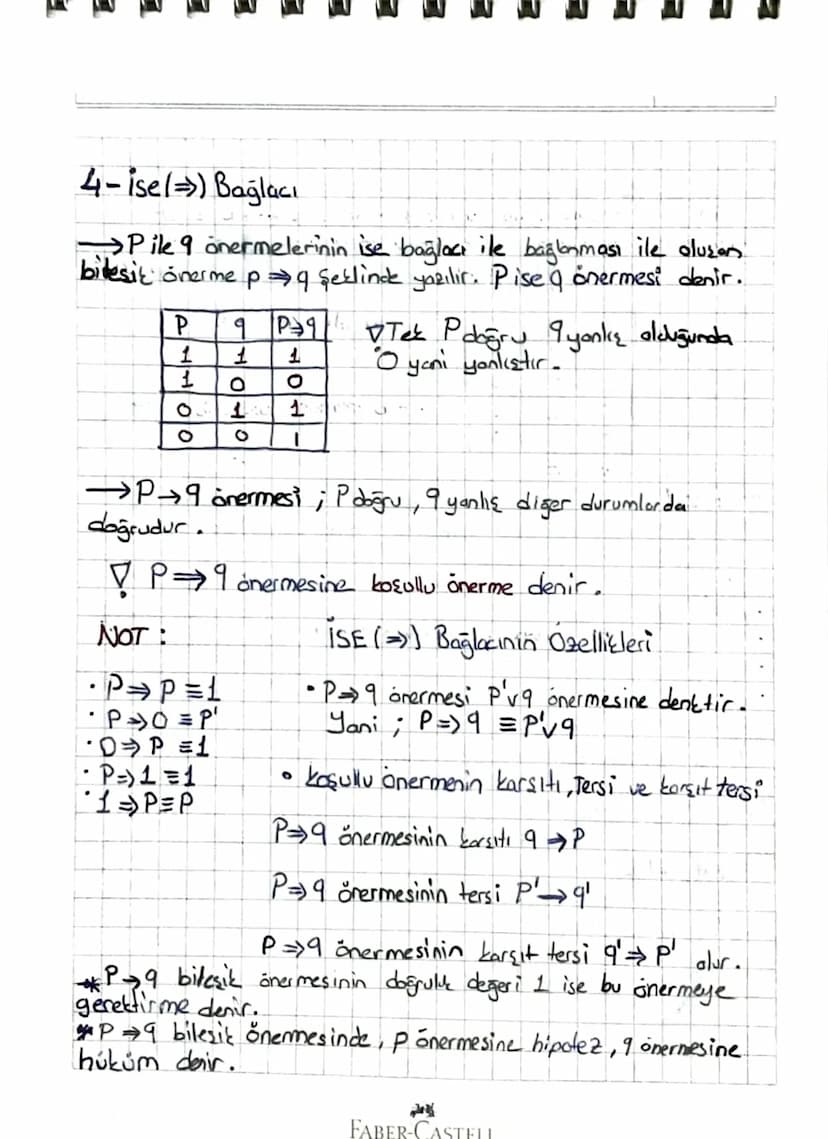 4-İse(⇒) Bağlacı
→P ile q önermelerinin ise bağlacı ile bağlanması ile oluşan
bileşik önerme p⇒q şeklinde yazılır. P ise q önermesi denir.
P q P⇒q
1 1 1
1 0 0
0 1 1
0 0 1
▽Tek P doğru q yanlış olduğunda
0 yani yanlıştır.
→P→q önermesi ; P doğru, q yanlış diğer durumlarda
doğrudur.
P⇒q önermesine koşullu önerme denir.
NOT :
· P⇒P≡1
· P⇒0≡P'
· 0⇒P≡1
· P⇒1≡1
· 1⇒P≡P
İSE(⇒) Bağlacının Özellikleri
• P⇒q önermesi P'∨q önermesine denktir.
Yani ; P⇒q ≡ P'∨q
• koşullu önermenin karşıtı, Tersi ve karşıt tersi
P⇒q önermesinin karşıtı q⇒P
P⇒q önermesinin tersi P'→q'
P⇒q önermesinin karşıt tersi q'⇒P' olur.
*P→q bileşik önermesinin doğruluk değeri 1 ise bu önermeye
gerektirme denir.
*P⇒q bileşik önermesinde, p önermesine hipotez, q önermesine
hüküm denir.
FABER-CASTELL